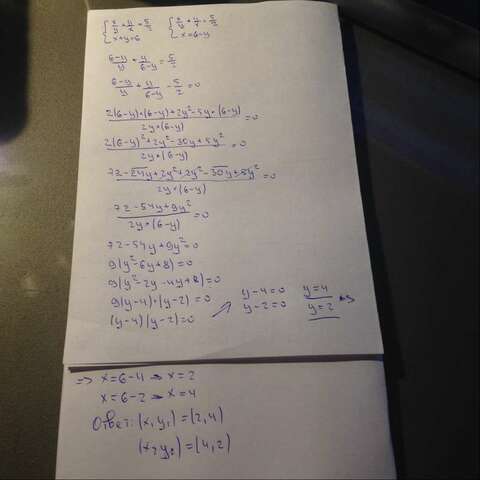 {x/y + y/x = 5/2 {x/y + y/x = 5/2
{x+y=6 {x=6-y
6-y/y + y/6-y = 5/2
6-y/y + y/6-y - 5/2 = 0
2(6-y)*(6-y)+2y²-5y*(6-y)/2y*(6-y) = 0
2(6-y)²+2y²-30y+5y²/2y*(6-y) = 0
72-24y+2y²+2y²-30y+5y²/2y*(6-y) = 0
72-54y+9y²/2y*(6-y) = 0
72-54y+9y²=0
9(y²-6y+8)=0
9(y²-2y-4y+8)=0
9(y-4)*(y-2)=0
(y-4)(y-2)=0
y-4=0 y=4
y-2=0 y=2 =>
=> x=6-4 → x=2
x=6-2 → x=4
Ответ: (x,y₁)=(2,4)
(x₂y₂)=(4,2)